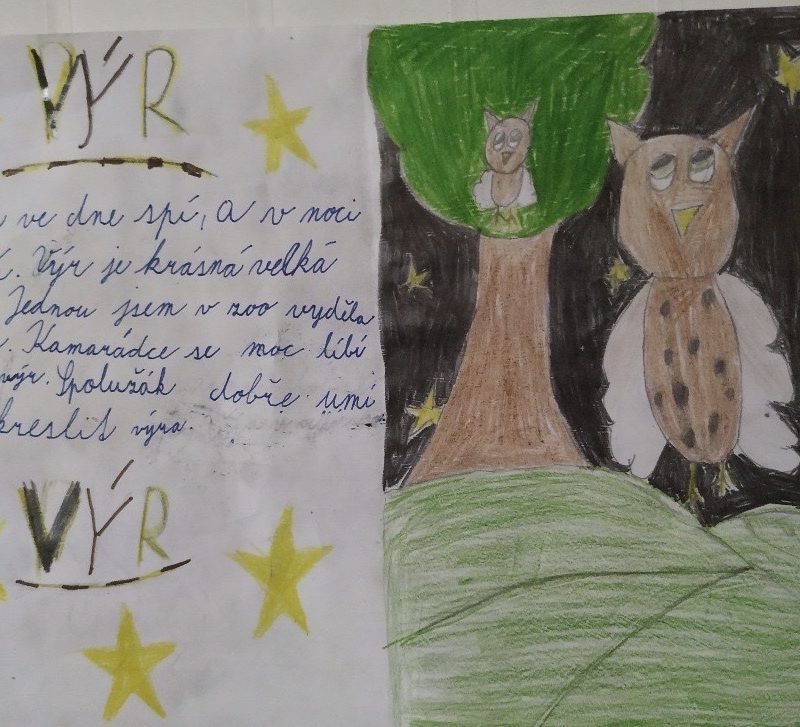 VÝR
ve dne spí, a v noci
. Výr je krásná velká
Jednou jsem v zoo vyděla
. Kamarádce se moc líbí
výr. Spolužák dobře umí
kreslit výra.
VÝR